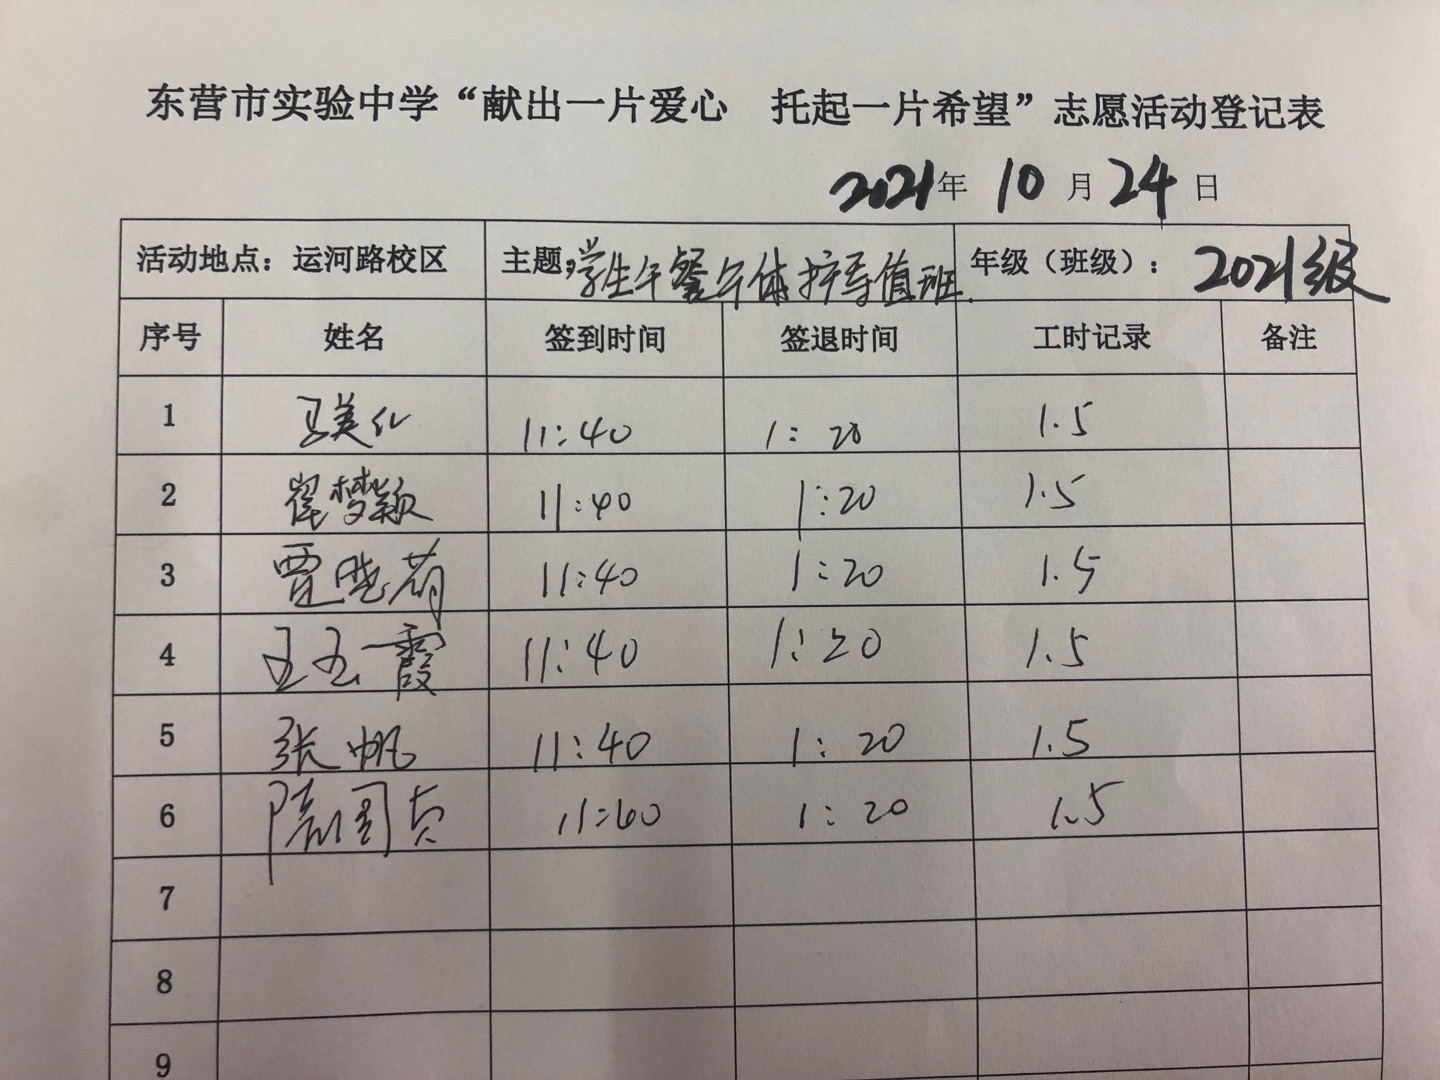 东营市实验中学“献出一片爱心 托起一片希望”志愿活动登记表
2021年 10月 24日
活动地点：运河路校区 主题：学生午餐午休护导值班. 年级（班级）：2021级
序号 姓名 签到时间 签退时间 工时记录 备注
1 11:40 1:20 1.5
2 崔梦颖 11:40 1:20 1.5
3 贾晓荷 11:40 1:20 1.5
4 王玉霞 11:40 1:20 1.5
5 张帆 11:40 1:20 1.5
6 隋国贞 11:40 1:20 1.5
7
8
9